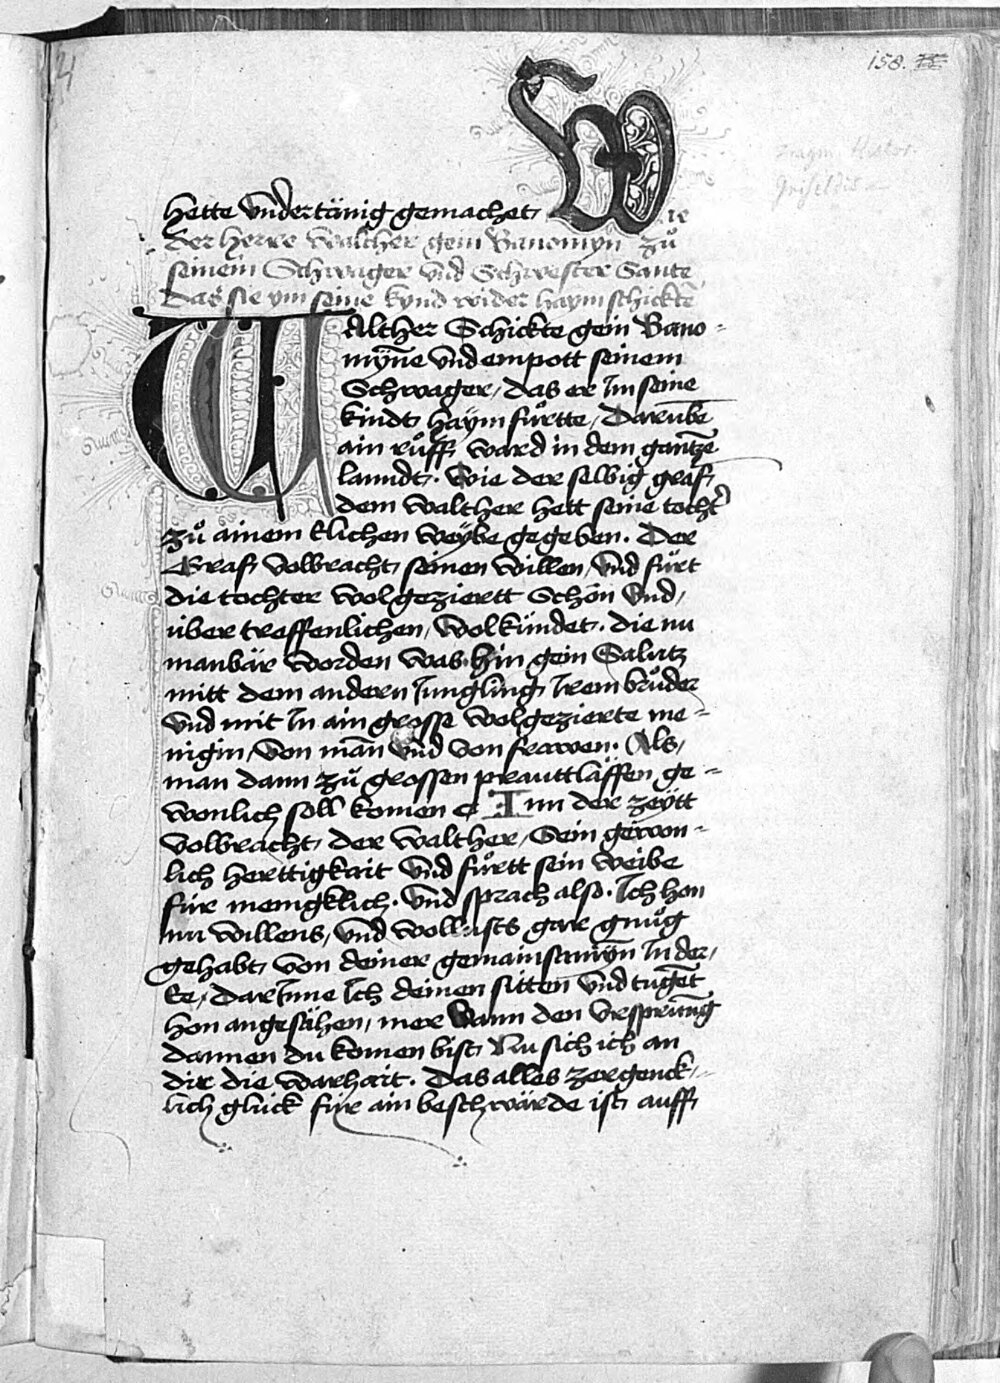 158.
fragm. Histor.
Griseldis
hette vndertänig gemachet, Wie
der herre walther gein Banomyn zů
seinem Schwager vnd Schwester Sante
Das sie vm seine kynd wider haym schickte
WAlther Schickte gein Bano-
myne vnd empott seinem
Schwager, das er Im seine
kindt haÿm fůrtte, Darumbe
ain růff ward in dem gantze
lanndt. wie der selbig graf
dem walther hett seine tocht
zů ainem Elichen weybe gegeben. Der
Graf volbracht seinen willen, vnd fürt
die tochter wolgeziertt Schön vnd,
über treffenlichen, wolkündet. die nu
manbär worden was. hin gein Salutz
mitt dem andern Jüngling Irem brůder
vnd mit In ain grosse wolgezierte me-
nigin, von man vnd von frawen. Als,
man dann zů grossen prauttläffen ge-
wonlich soll komen Inn der zeÿtt
volbracht, der walther, Sein gewon-
lich herttigkait vnd fůrtt sein weibe
für menigklich. vnd sprach also. Ich hon
nu willens, vnd wollusts gar gnůg
gehabt, von deiner gemainsamÿn In der,
ke, Dar Inne Ich deinen sitten vnd tuget
hon angesähen, mer wann den vrsprung
dannen du komen bist, Nu sich ich an
dir die warhait. Das alles zergenck-
lich glück für ain beschwärde ist, auff,